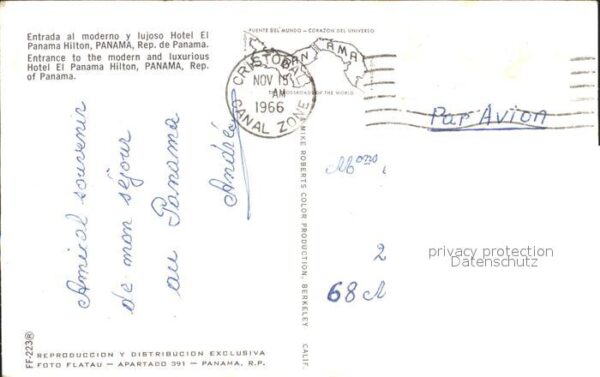 Entrada al moderno y lujoso Hotel El
Panama Hilton, PANAMÁ, Rep. de Panama.
Entrance to the modern and luxurious
Hotel El Panama Hilton, PANAMA, Rep.
of Panama.
PUENTE DEL MUNDO - CORAZON DEL UNIVERSO
PANAMA
THE CROSSROADS OF THE WORLD
CRISTOBAL
NOV 15
AM
1966
CANAL ZONE
Par Avion
Amical souvenir
de mon séjour
au Panama
André
MIKE ROBERTS COLOR PRODUCTION, BERKELEY CALIF.
2
68
privacy protection
Datenschutz
FF-223®
REPRODUCCION Y DISTRIBUCION EXCLUSIVA
FOTO FLATAU — APARTADO 391 — PANAMA, R.P.